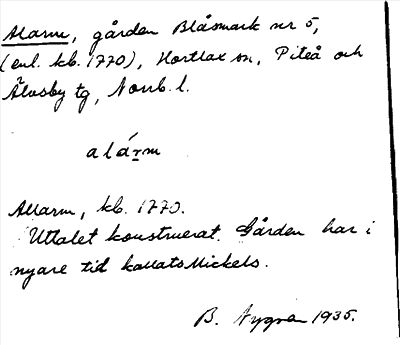 Alarm, gården Blåsmark nr 5,
(enl. kb. 1770), Hortlax sn, Piteå och
Älvsby tg, Norrb. l.
alárm
Allarm, kb. 1770.
Uttalet konstruerat. Gården har i
nyare tid kallats Mickels.
B. Nygren 1935.